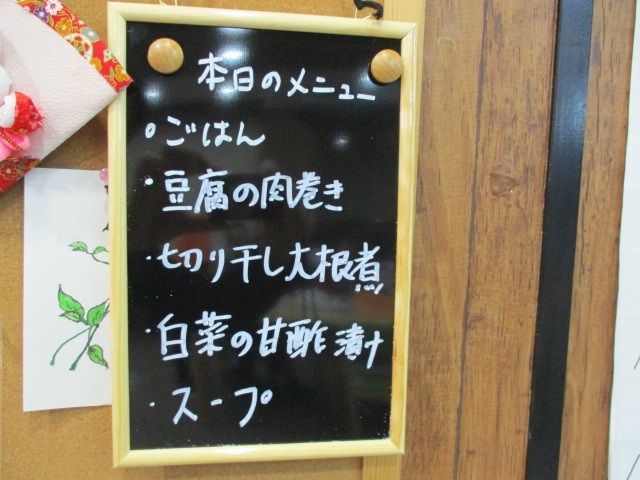 本日のメニュー
・ごはん
・豆腐の肉巻き
・切り干し大根煮
・白菜の甘酢漬け
・スープ